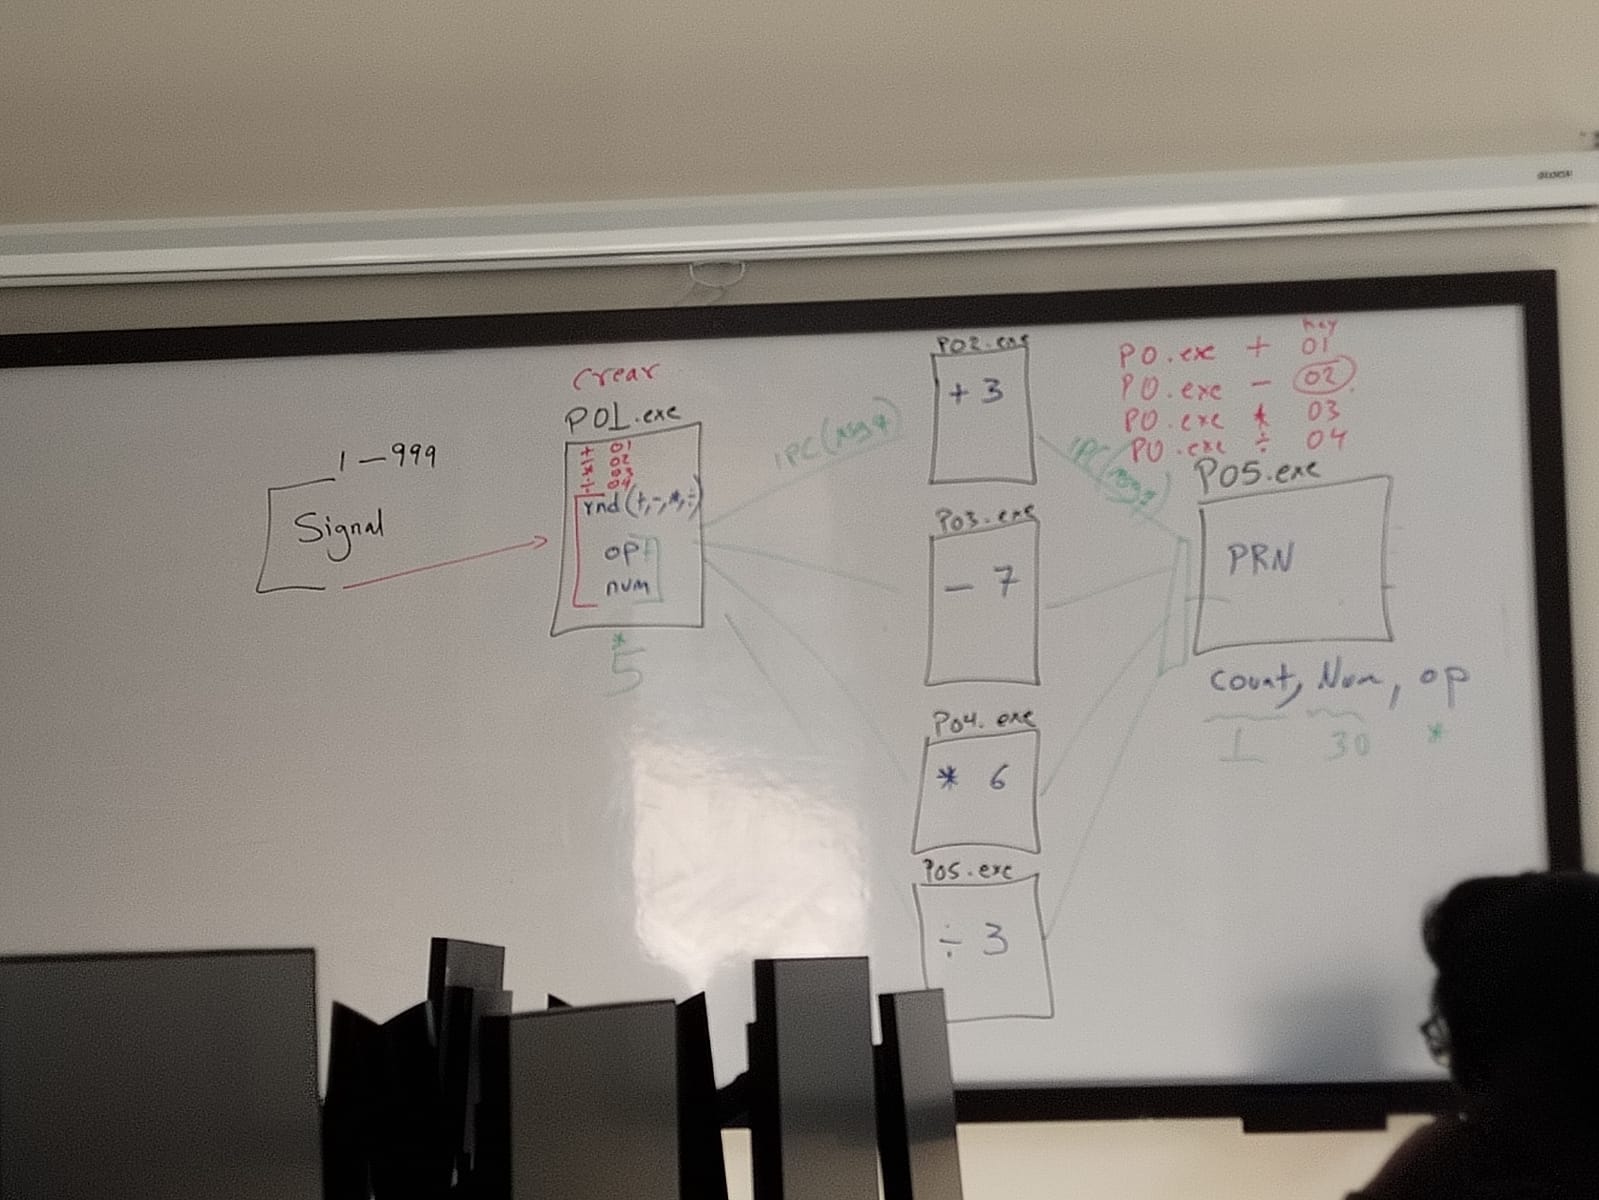 1 – 999
Signal
Crear
P01.exe
+ 01
- 02
* 03
÷ 04
rnd (+,-,*,÷)
op
num
*
5
IPC(msg
P02.exe
+ 3
P03.exe
– 7
P04.exe
* 6
P05.exe
÷ 3
IPC(msg
key
P0.exe + 01
P0.exe – 02
P0.exe * 03
P0.exe ÷ 04
P05.exe
PRN
Count, Num, op
1 30 *